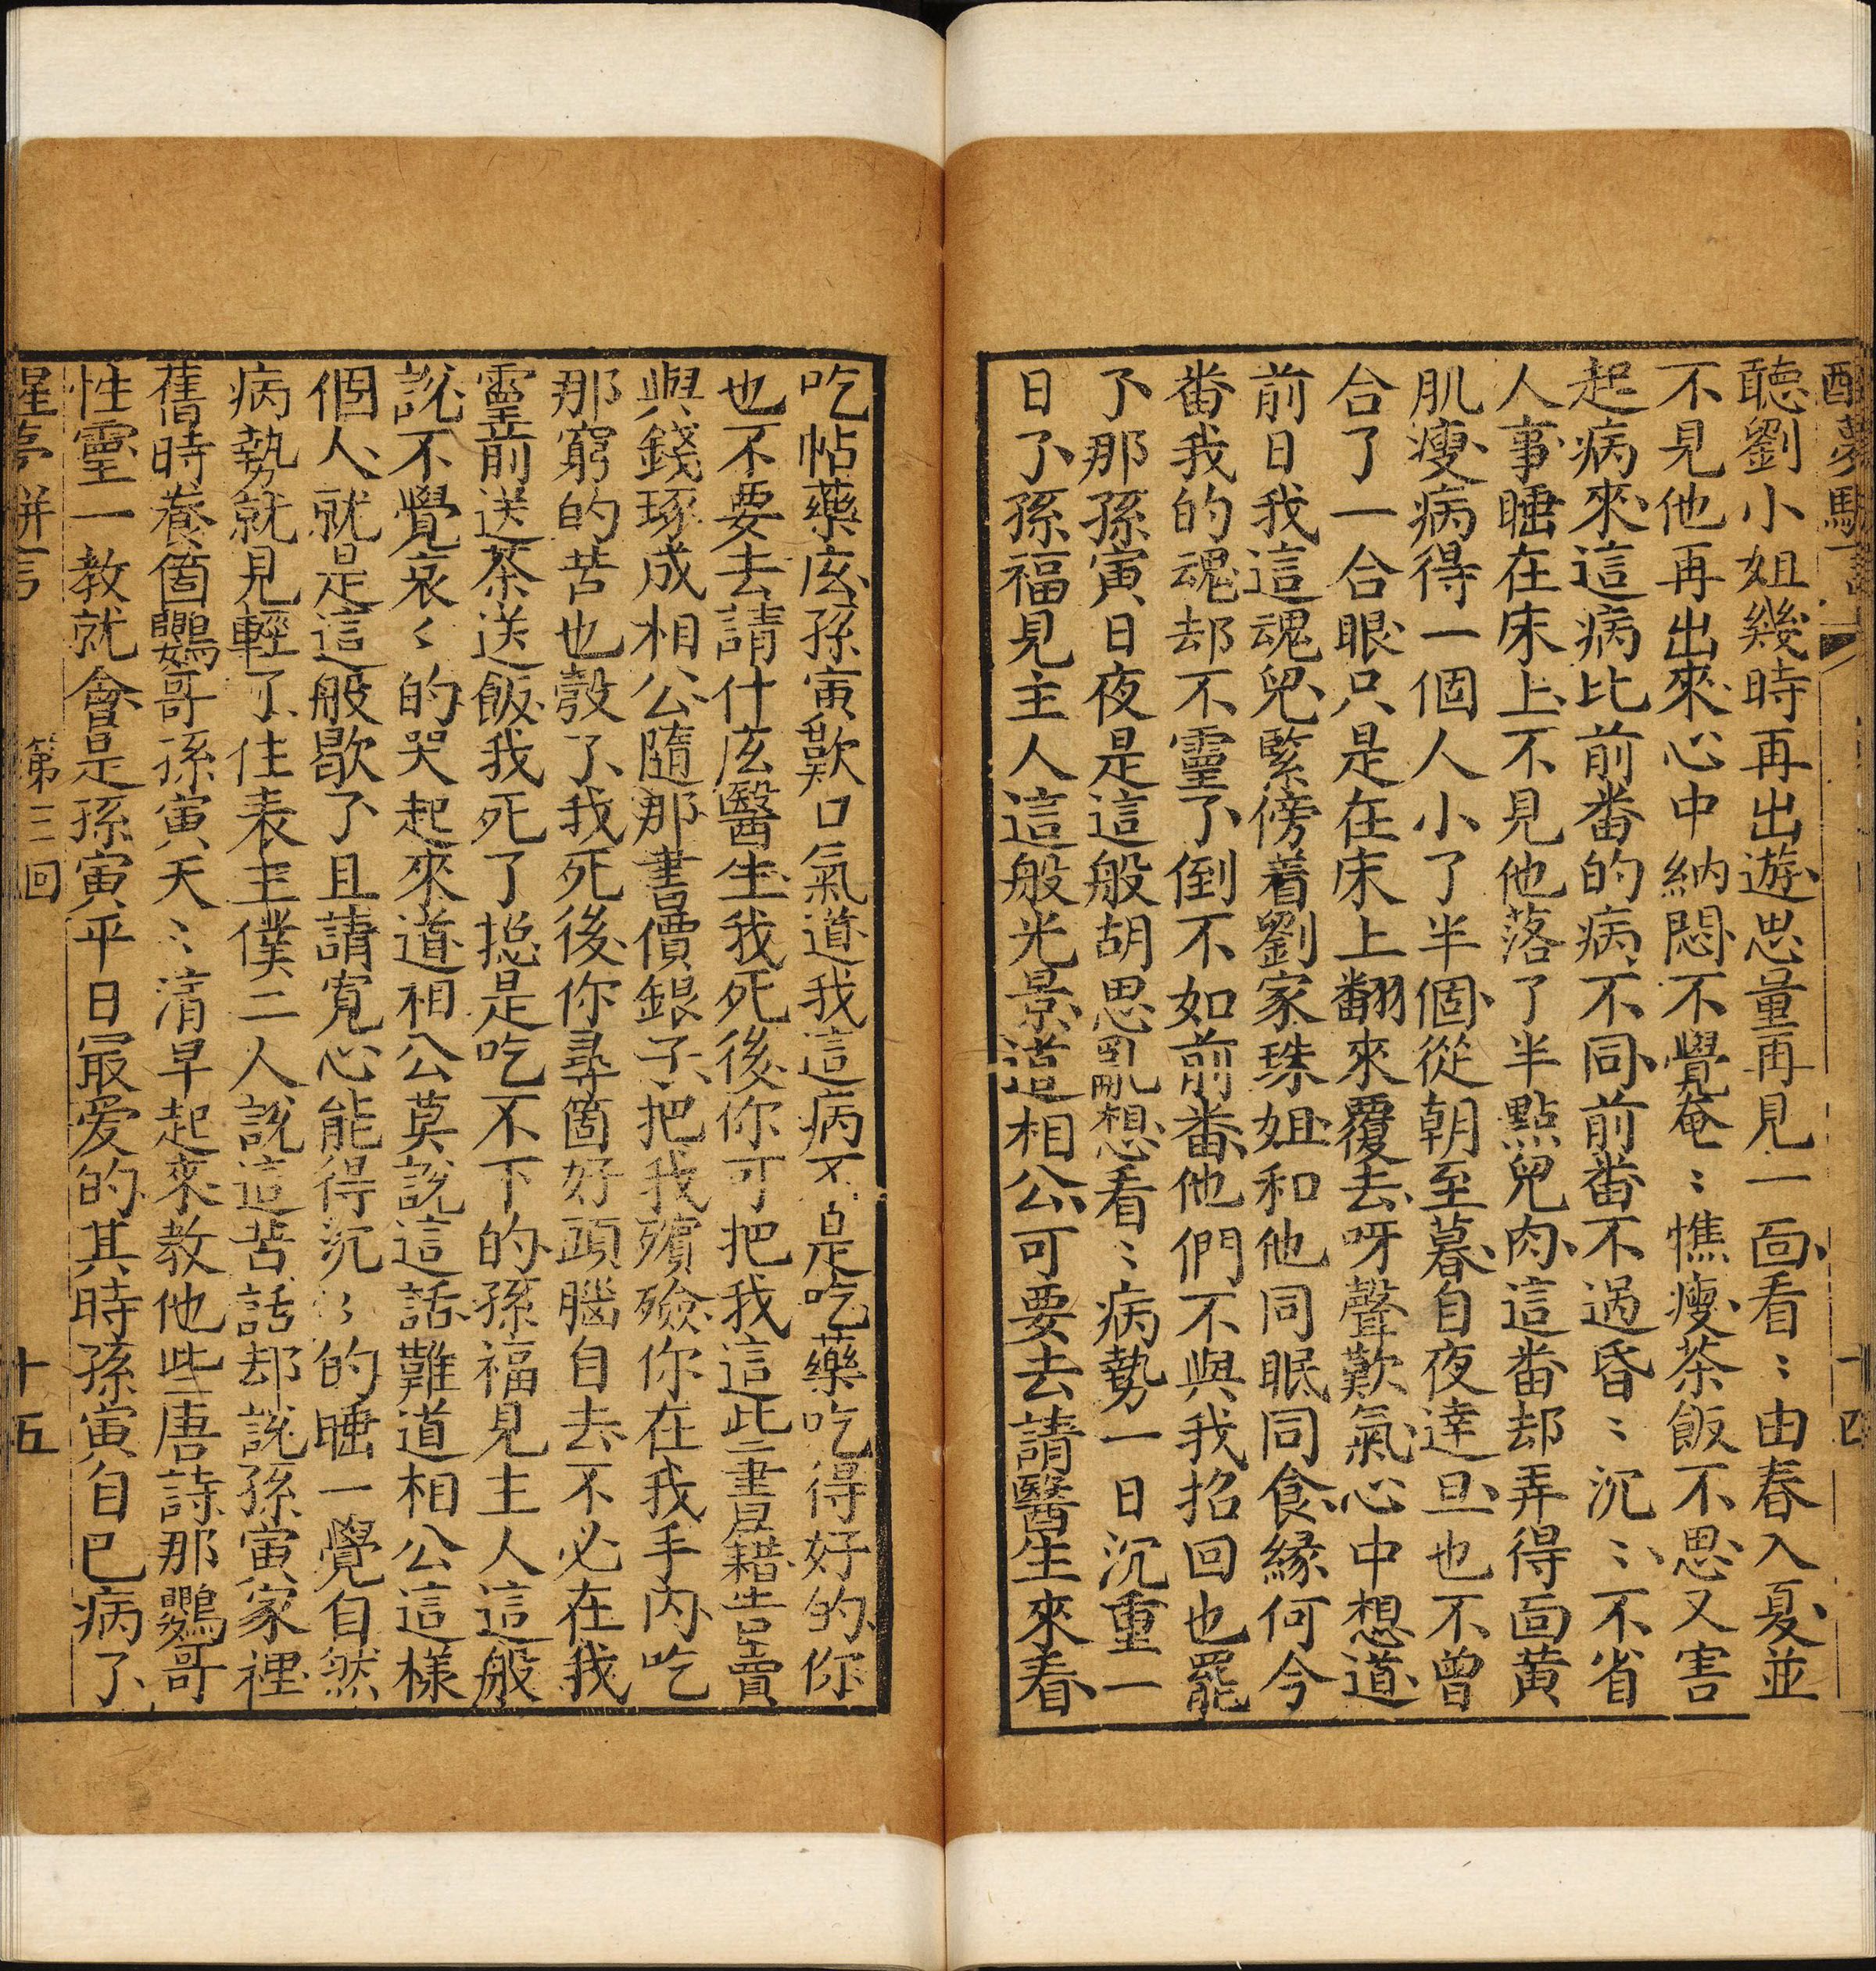 醒夢駢言
十四
聽劉小姐幾時再出遊思量再見一面看〻由春入夏並
不見他再出來心中納悶不覺奄〻憔瘦茶飯不思又害
起病來這病比前番的病不同前番不過昏〻沉〻不省
人事睡在床上不見他落了半點兒肉這番却弄得面黃
肌瘦病得一個人小了半個從朝至暮自夜達旦也不曾
合了一合眼只是在床上翻來覆去呀聲歎氣心中想道
前日我這魂兒緊傍着劉家珠姐和他同眠同食緣何今
番我的魂却不靈了倒不如前番他們不與我招回也罷
了那孫寅日夜是這般胡思亂想看〻病勢一日沉重一
日了孫福見主人這般光景道相公可要去請醫生來看
吃帖藥庅孫寅歎口氣道我這病不是吃藥吃得好的你
也不要去請什庅醫生我死後你可把我這些書籍告賣
與錢琢成相公隨那書價銀子把我殯殮你在我手內吃
那窮的苦也彀了我死後你尋箇好頭腦自去不必在我
靈前送茶送飯我死了揔是吃不下的孫福見主人這般
說不覺哀〻的哭起來道相公莫說這話難道相公這樣
個人就是這般歇了且請寬心能得沉〻的睡一覺自然
病勢就見輕了住表主僕二人說這苦話却說孫寅家裡
舊時養箇鸚哥孫寅天〻清早起來教他些唐詩那鸚哥
性靈一教就會是孫寅平日最爱的其時孫寅自巳病了
醒夢駢言
第三回
十五